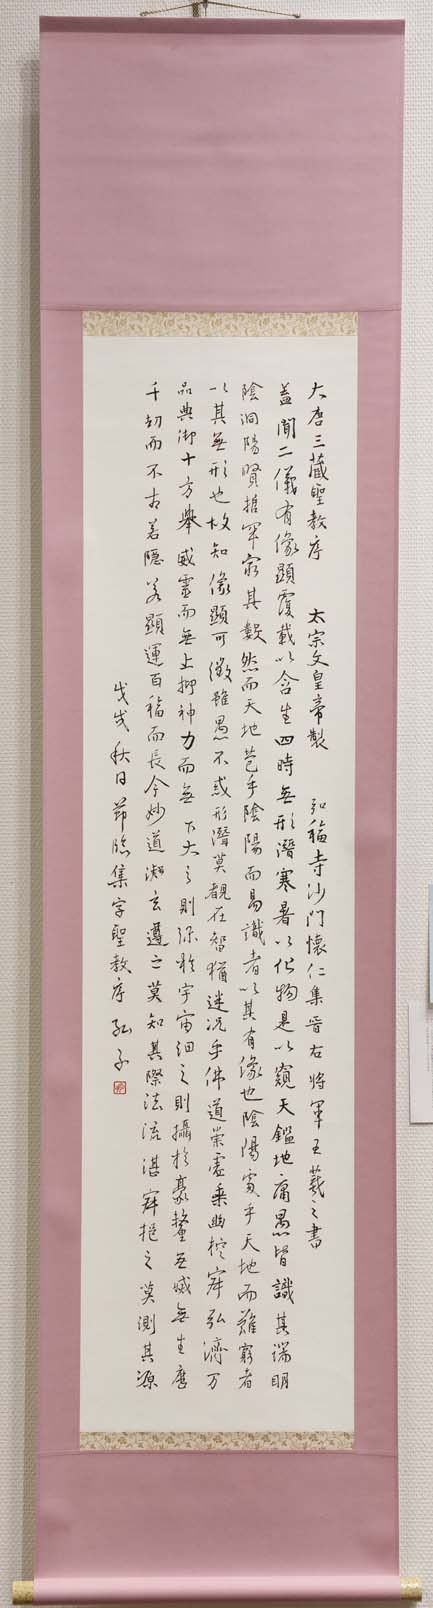 大唐三藏聖教序 太宗文皇帝製 弘福寺沙門懷仁集晉右將軍王羲之書
蓋聞二儀有像顯覆載以含生四時無形潛寒暑以化物是以窺天鑑地庸愚皆識其端明
陰洞陽賢哲罕窮其數然而天地苞乎陰陽而易識者以其有像也陰陽處乎天地而難窮者
以其無形也故知像顯可徵雖愚不惑形潛莫覩在智猶迷況乎佛道崇虛乘幽控寂弘濟万
品典御十方舉威靈而無上抑神力而無下大之則弥於宇宙細之則攝於豪釐無滅無生歷
千劫而不古若隱若顯運百福而長今妙道凝玄遵之莫知其際法流湛寂挹之莫測其源
戊戌秋日節臨集字聖教序 弘子